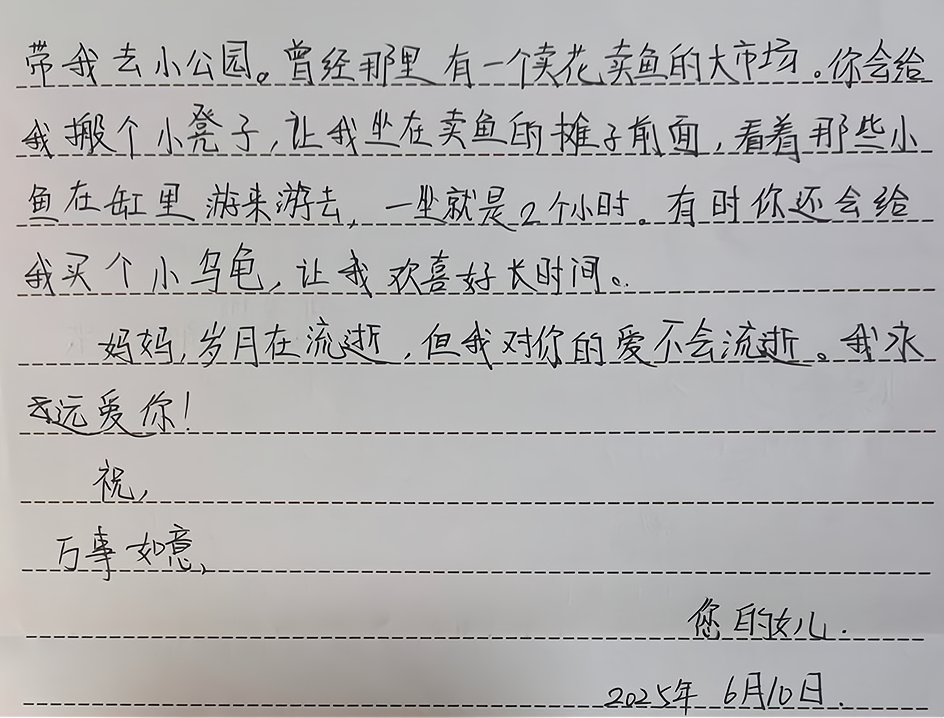 带我去小公园。曾经那里有一个卖花卖鱼的大市场。你会给
我搬个小凳子,让我坐在卖鱼的摊子前面,看着那些小
鱼在缸里游来游去,一坐就是2个小时。有时你还会给
我买个小乌龟,让我欢喜好长时间。
妈妈,岁月在流逝,但我对你的爱不会流逝。我永
远爱你!
祝,
万事如意,
您的女儿.
2025年 6月10日.